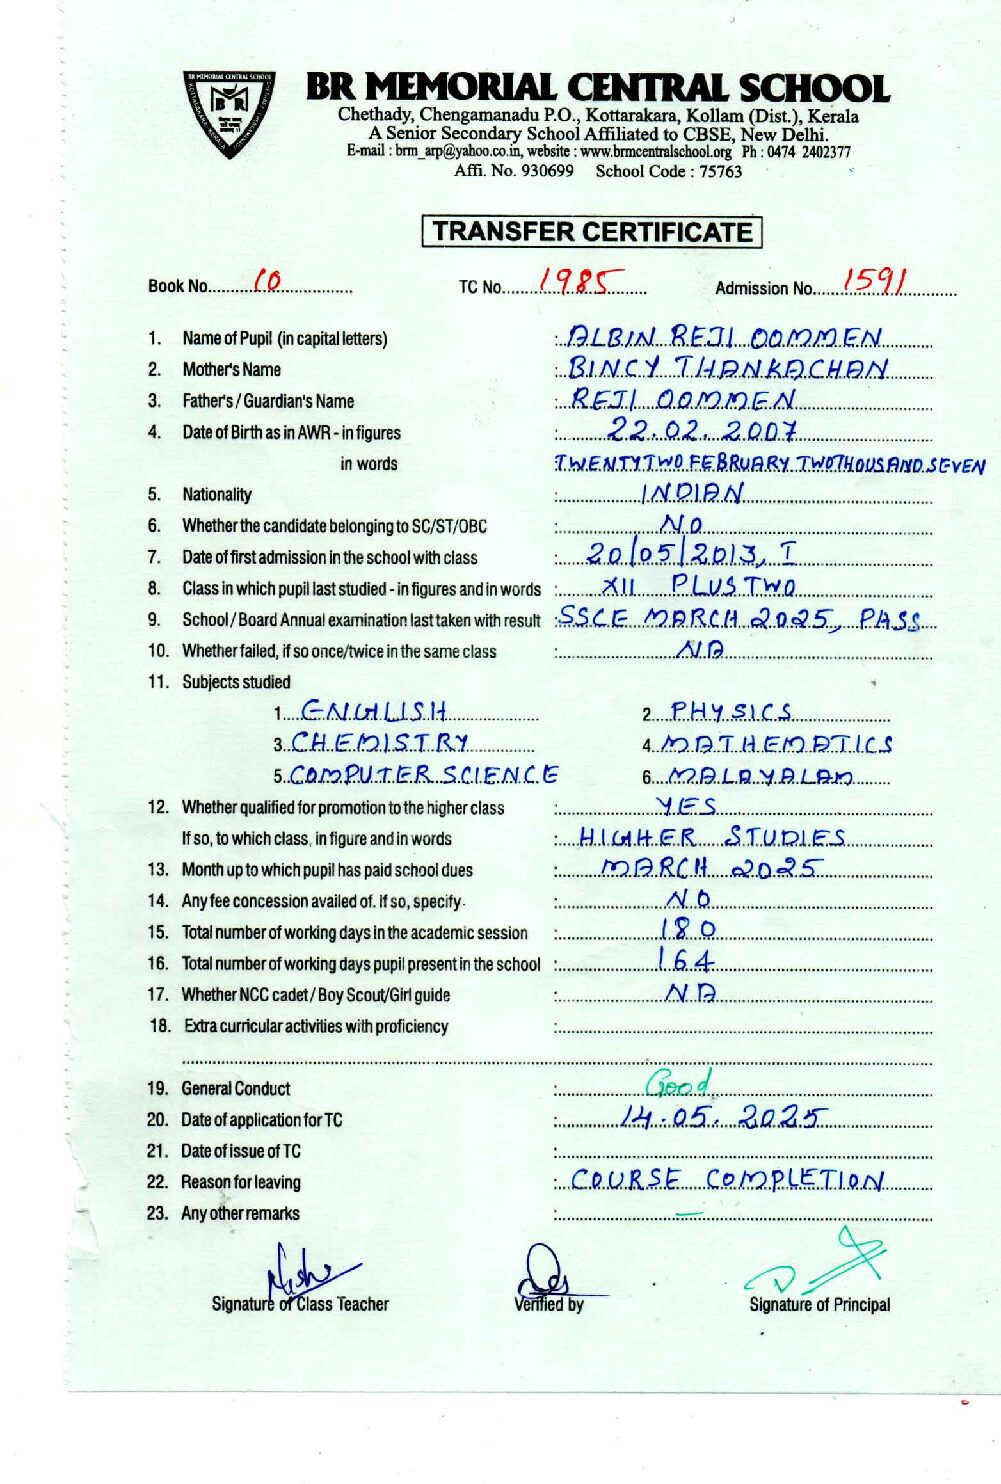 BR MEMORIAL CENTRAL SCHOOL
B R
BR MEMORIAL CENTRAL SCHOOL
Chethady, Chengamanadu P.O., Kottarakara, Kollam (Dist.), Kerala
A Senior Secondary School Affiliated to CBSE, New Delhi.
E-mail : brm_arp@yahoo.co.in, website : www.brmcentralschool.org Ph : 0474 2402377
Affi. No. 930699 School Code : 75763
TRANSFER CERTIFICATE
Book No. 10 TC No. 1985 Admission No. 1591
1. Name of Pupil (in capital letters) : ALBIN REJI OOMMEN
2. Mother's Name : BINCY THANKACHAN
3. Father's / Guardian's Name : REJI OOMMEN
4. Date of Birth as in AWR - in figures : 22.02.2007
in words TWENTYTWO FEBRUARY TWOTHOUSAND SEVEN
5. Nationality : INDIAN
6. Whether the candidate belonging to SC/ST/OBC : NO
7. Date of first admission in the school with class : 20/05/2013, I
8. Class in which pupil last studied - in figures and in words : XII PLUS TWO
9. School / Board Annual examination last taken with result : SSCE MARCH 2025, PASS
10. Whether failed, if so once/twice in the same class : NA
11. Subjects studied
1. ENGLISH 2. PHYSICS
3. CHEMISTRY 4. MATHEMATICS
5. COMPUTER SCIENCE 6. MALAYALAM
12. Whether qualified for promotion to the higher class : YES
If so, to which class, in figure and in words : HIGHER STUDIES
13. Month up to which pupil has paid school dues : MARCH 2025
14. Any fee concession availed of. If so, specify. : NO
15. Total number of working days in the academic session : 180
16. Total number of working days pupil present in the school : 164
17. Whether NCC cadet / Boy Scout/Girl guide : NA
18. Extra curricular activities with proficiency :
19. General Conduct : Good
20. Date of application for TC : 14.05.2025
21. Date of issue of TC :
22. Reason for leaving : COURSE COMPLETION
23. Any other remarks : —
Signature of Class Teacher Verified by Signature of Principal